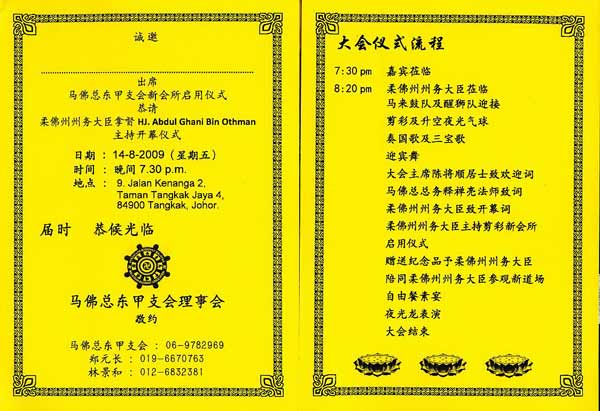 诚邀
出席
马佛总东甲支会新会所启用仪式
恭请
柔佛州州务大臣拿督 HJ. Abdul Ghani Bin Othman
主持开幕仪式
日期 : 14-8-2009 (星期五)
时间 : 晚间 7.30 p.m.
地点 : 9. Jalan Kenanga 2,
Taman Tangkak Jaya 4,
84900 Tangkak, Johor.
届时 恭候光临
马佛总东甲支会理事会
敬约
马佛总东甲支会 : 06-9782969
郑元长 : 019-6670763
林景和 : 012-6832381
大会仪式流程
7:30 pm 嘉宾莅临
8:20 pm 柔佛州州务大臣莅临
马来鼓队及醒狮队迎接
剪彩及升空夜光气球
奏国歌及三宝歌
迎宾舞
大会主席陈将顺居士致欢迎词
马佛总总务释禅亮法师致词
柔佛州州务大臣致开幕词
柔佛州州务大臣主持剪彩新会所
启用仪式
赠送纪念品予柔佛州州务大臣
陪同柔佛州州务大臣参观新道场
自由餐素宴
夜光龙表演
大会结束